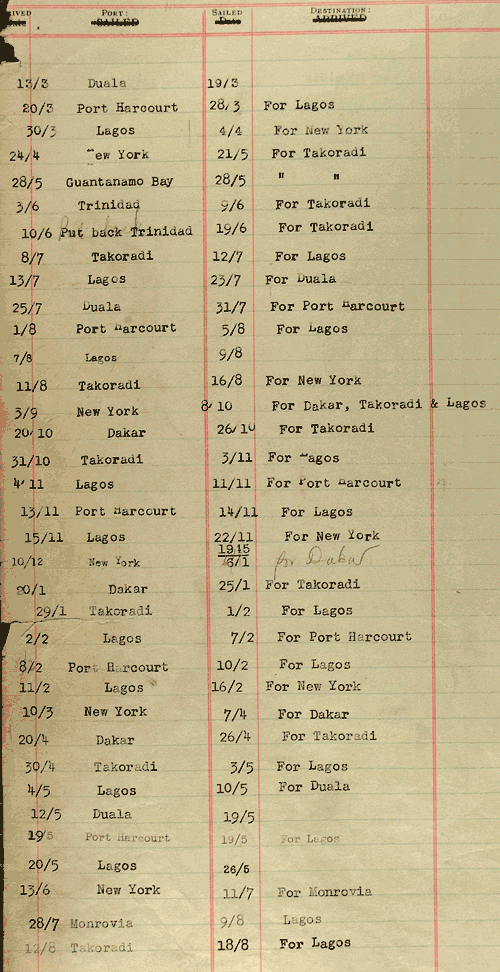 IVED PORT: SAILED DESTINATION:
Date SAILED Date ARRIVED
13/3 Duala 19/3
20/3 Port Harcourt 28/3 For Lagos
30/3 Lagos 4/4 For New York
24/4 ew York 21/5 For Takoradi
28/5 Guantanamo Bay 28/5 " "
3/6 Trinidad 9/6 For Takoradi
10/6 Put back Trinidad 19/6 For Takoradi
8/7 Takoradi 12/7 For Lagos
13/7 Lagos 23/7 For Duala
25/7 Duala 31/7 For Port Harcourt
1/8 Port Harcourt 5/8 For Lagos
7/8 Lagos 9/8
11/8 Takoradi 16/8 For New York
3/9 New York 8/10 For Dakar, Takoradi & Lagos
20/10 Dakar 26/10 For Takoradi
31/10 Takoradi 3/11 For Lagos
4/11 Lagos 11/11 For Port Harcourt
13/11 Port Harcourt 14/11 For Lagos
15/11 Lagos 22/11 For New York
1945
10/12 New York 6/1 for Dakar
20/1 Dakar 25/1 For Takoradi
29/1 Takoradi 1/2 For Lagos
2/2 Lagos 7/2 For Port Harcourt
8/2 Port Harcourt 10/2 For Lagos
11/2 Lagos 16/2 For New York
10/3 New York 7/4 For Dakar
20/4 Dakar 26/4 For Takoradi
30/4 Takoradi 3/5 For Lagos
4/5 Lagos 10/5 For Duala
12/5 Duala 19/5
19/5 Port Harcourt 19/5 For Lagos
20/5 Lagos 26/5
13/6 New York 11/7 For Monrovia
28/7 Monrovia 9/8 Lagos
12/8 Takoradi 18/8 For Lagos